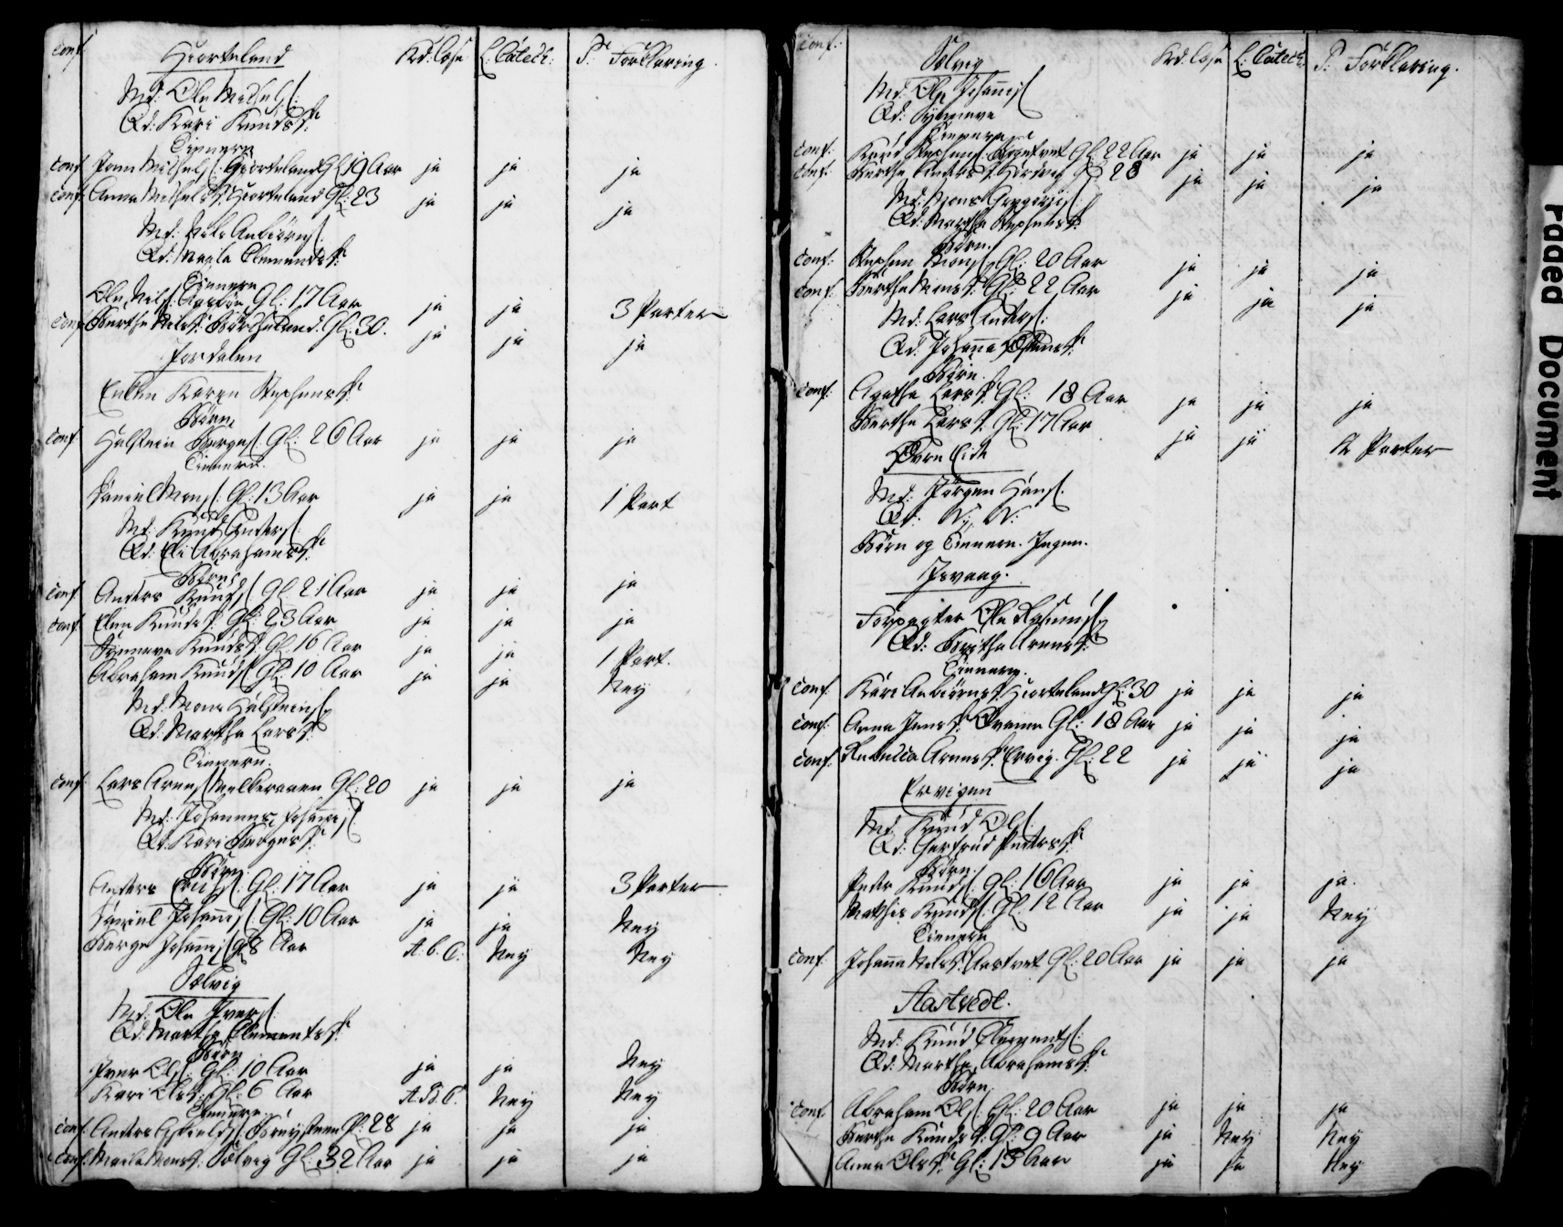 conf. Hiorteland Kd: Læse L: Catech: P: Forklaring.
Md: Ole Michels:
Qd: Kari Knudsd:
Tienere
conf. Joen Michels: Hiorteland Gl: 19 Aar ja ja ja
conf. Anna Michelsd: Hiorteland Gl: 23 ja ja ja
Md: Nils Anbiørns:
Qd: Magla Clemendsd:
Tienere
Ole Nils: Gl: 17 Aar ja ja 3 Parter
conf. Berthe Nilsd: Gl: 30. ja ja ja
Jordalen
Enken Karen Stephensd:
Børn
conf. Halstein Børges: Gl: 26 Aar ja ja ja
Tienere
Daniel Mons: Gl: 13 Aar ja ja 1 Part
Md: Knud Anders:
Qd: Eli Abrahamsd:
Børn
conf. Anders Knuds: Gl: 21 Aar ja ja ja
conf. Elen Knudsd: Gl: 23 Aar ja ja ja
Synneve Knudsd: Gl: 16 Aar ja ja 1 Part.
Abraham Knuds: Gl: 10 Aar ja ja Ney
Md: Mons Halsteins:
Qd: Marthe Larsd:
Tienere.
conf. Lars Arnes: Gl: 20 ja ja ja
Md: Johannes Johannis:
Qd: Kari Børgesd:
Børn
Anders Gl: 17 Aar ja ja 3 Parter
Daniel Johannis: Gl: 10 Aar ja ja Ney
Børge Johannis: Gl: 8 Aar A.b.C. Ney Ney
Sælvig
Md: Ole Ivers:
Qd: Marthe Clementsd:
Børn
Iver Ols: Gl: 10 Aar ja ja Ney
Kari Olsd: Gl: 6 Aar A.B.C. Ney Ney
Tienere.
conf. Anders Gl: 28 ja ja ja
conf. Magla Monsd: Sælvig Gl: 32 Aar ja ja ja
conf: Sælvig Kd: Læse L: Catech: P: Forklaring.
Md: Ole Johannis:
Qd: Synneve
Tienere
conf: Kari Stephensd: Gl: 22 Aar ja ja ja
conf: Berthe Gl: 28 ja ja ja
Md: Mons Gregoris:
Qd: Marthe Stephensd:
Børn.
conf: Stephen Mons: Gl: 20 Aar ja ja ja
conf: Berthe Monsd: Gl: 22 Aar ja ja ja
Md: Lars Anders:
Qd: Johanna
Børn.
conf: Agathe Larsd: Gl: 18 Aar ja ja ja
Berthe Larsd: Gl: 17 Aar ja ja 2 Parter
Øvre Eide
Md: Jørgen Hans:
Qd: N: N:
Børn og Tienere. Ingen.
Isvaag.
Forpagter Ole Rasmus:
Qd: Birthe Arnesd:
Tienere.
conf. Kari Anbiørnsd: Hiorteland Gl: 30 ja ja ja
conf: Anna Jensd: Gl: 18 Aar ja ja ja
conf: Rebecca Arnesd: Ervig. Gl: 22 ja ja ja
Ervigen
Md: Knud Ols:
Qd: Gertrud Pedersd:
Børn
Peder Knuds: Gl: 16 Aar ja ja ja.
Mathis Knuds: Gl: 12 Aar ja ja Ney
Tienere
conf. Johanna Nilsd: Aastvet Gl: 20 Aar ja ja ja
Aastvedt.
Md: Knud Clements:
Qd: Marthe Abrahamsd:
Børn
conf. Abraham Ols: Gl: 20 Aar ja ja ja
Berthe Knudsd: Gl: 9 Aar ja Ney Ney
Anna Olsd: Gl: 13 Aar ja ja Ney
Faded Document